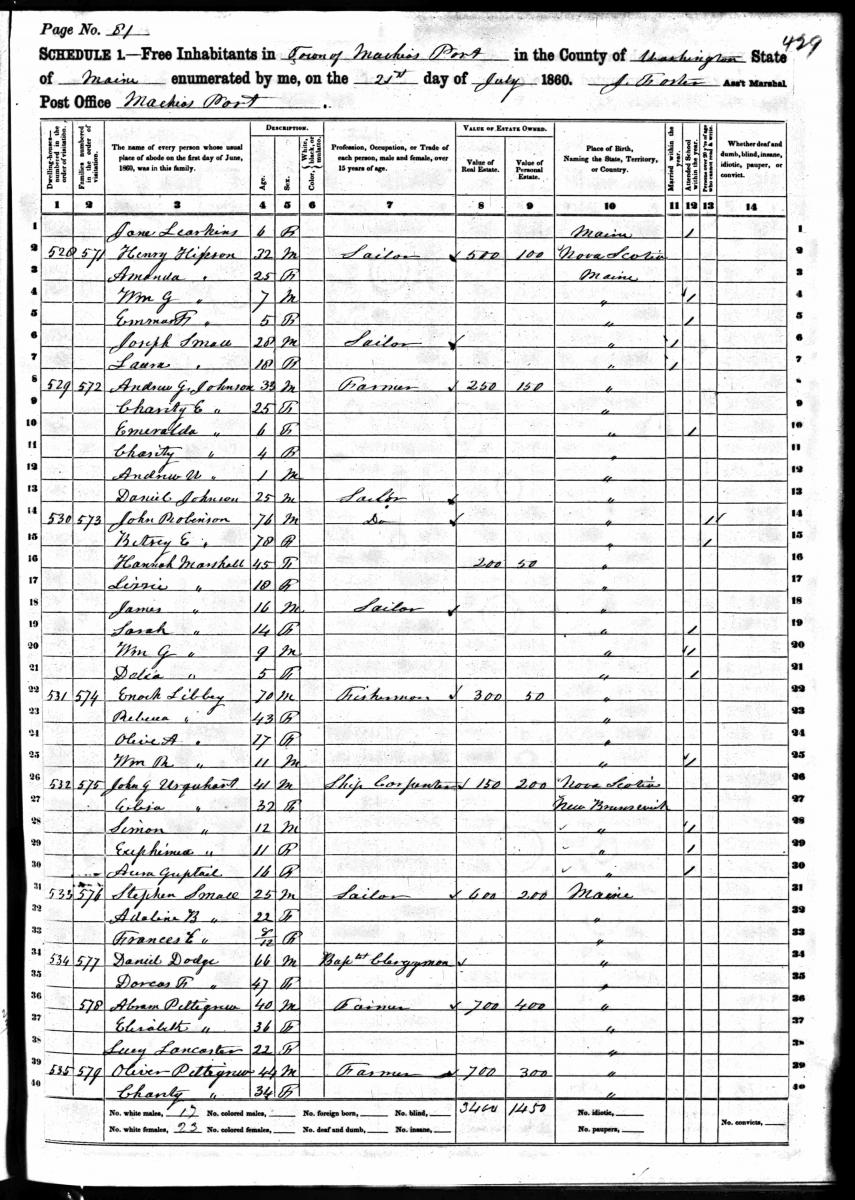 Page No. 81
429
SCHEDULE 1.—Free Inhabitants in Town of Machias Port in the County of Washington State
of Maine enumerated by me, on the 21st day of July 1860. J. Foster Ass't Marshal
Post Office Machias Port.
Dwelling-houses—numbered in the order of visitation.
Families numbered in the order of visitation.
The name of every person whose usual place of abode on the first day of June, 1860, was in this family.
DESCRIPTION.
Age.
Sex.
Color, White, black, or mulatto.
Profession, Occupation, or Trade of each person, male and female, over 15 years of age.
VALUE OF ESTATE OWNED.
Value of Real Estate.
Value of Personal Estate.
Place of Birth, Naming the State, Territory, or Country.
Married within the year.
Attended School within the year.
Persons over 20 y'rs of age who cannot read & write.
Whether deaf and dumb, blind, insane, idiotic, pauper, or convict.
1 2 3 4 5 6 7 8 9 10 11 12 13 14
1 Jane 6 F Maine 1 1
2 528 571 Henry Hipson 32 M Sailor 500 100 Nova Scotia 2
3 Amanda " 25 F Maine 3
4 Wm G " 7 M " 1 4
5 Emma F " 5 F " 1 5
6 Joseph Small 28 M Sailor " 1 6
7 Laura " 18 F " 1 7
8 529 572 Andrew G. Johnson 33 M Farmer 250 150 " 8
9 Charity E " 25 F " 9
10 Emeralda " 6 F " 1 10
11 Charity " 4 F " 11
12 Andrew " 1 M " 12
13 Daniel Johnson 25 M Sailor " 13
14 530 573 John Robinson 76 M Do " 1 14
15 Betsey E " 78 F " 1 15
16 Hannah Marshall 45 F 200 50 " 16
17 Lizzie " 18 F " 17
18 James " 16 M Sailor " 18
19 Sarah " 14 F " 1 19
20 Wm G " 9 M " 1 20
21 Delia " 5 F " 1 21
22 531 574 Enoch Libbey 70 M Fisherman 300 50 " 22
23 Rebecca " 43 F " 23
24 Olive A " 17 F " 24
25 Wm " 11 M " 1 25
26 532 575 John G Urquhart 41 M Ship Carpenter 150 200 Nova Scotia 26
27 " 32 F New Brunswick 27
28 Simon " 12 M " 1 28
29 Exephimea " 11 F " 1 29
30 Guptail 16 F " 1 30
31 533 576 Stephen Small 25 M Sailor 600 200 Maine 31
32 Adaline B " 22 F " 32
33 Frances E " 8/12 F " 33
34 534 577 Daniel Dodge 66 M Baptst Clergyman " 34
35 Dorcas F " 47 F " 35
36 578 Abram Pettegrew 40 M Farmer 700 400 " 36
37 Elisabeth " 36 F " 37
38 Lucy Lancaster 22 F " 38
39 535 579 Oliver Pettegrew 44 M Farmer 700 300 " 39
40 Charity " 34 F " 40
No. white males, 17 No. colored males, No. foreign born, No. blind, 3400 1450 No. idiotic,
No. white females, 23 No. colored females, No. deaf and dumb, No. insane, No. paupers, No. convicts,